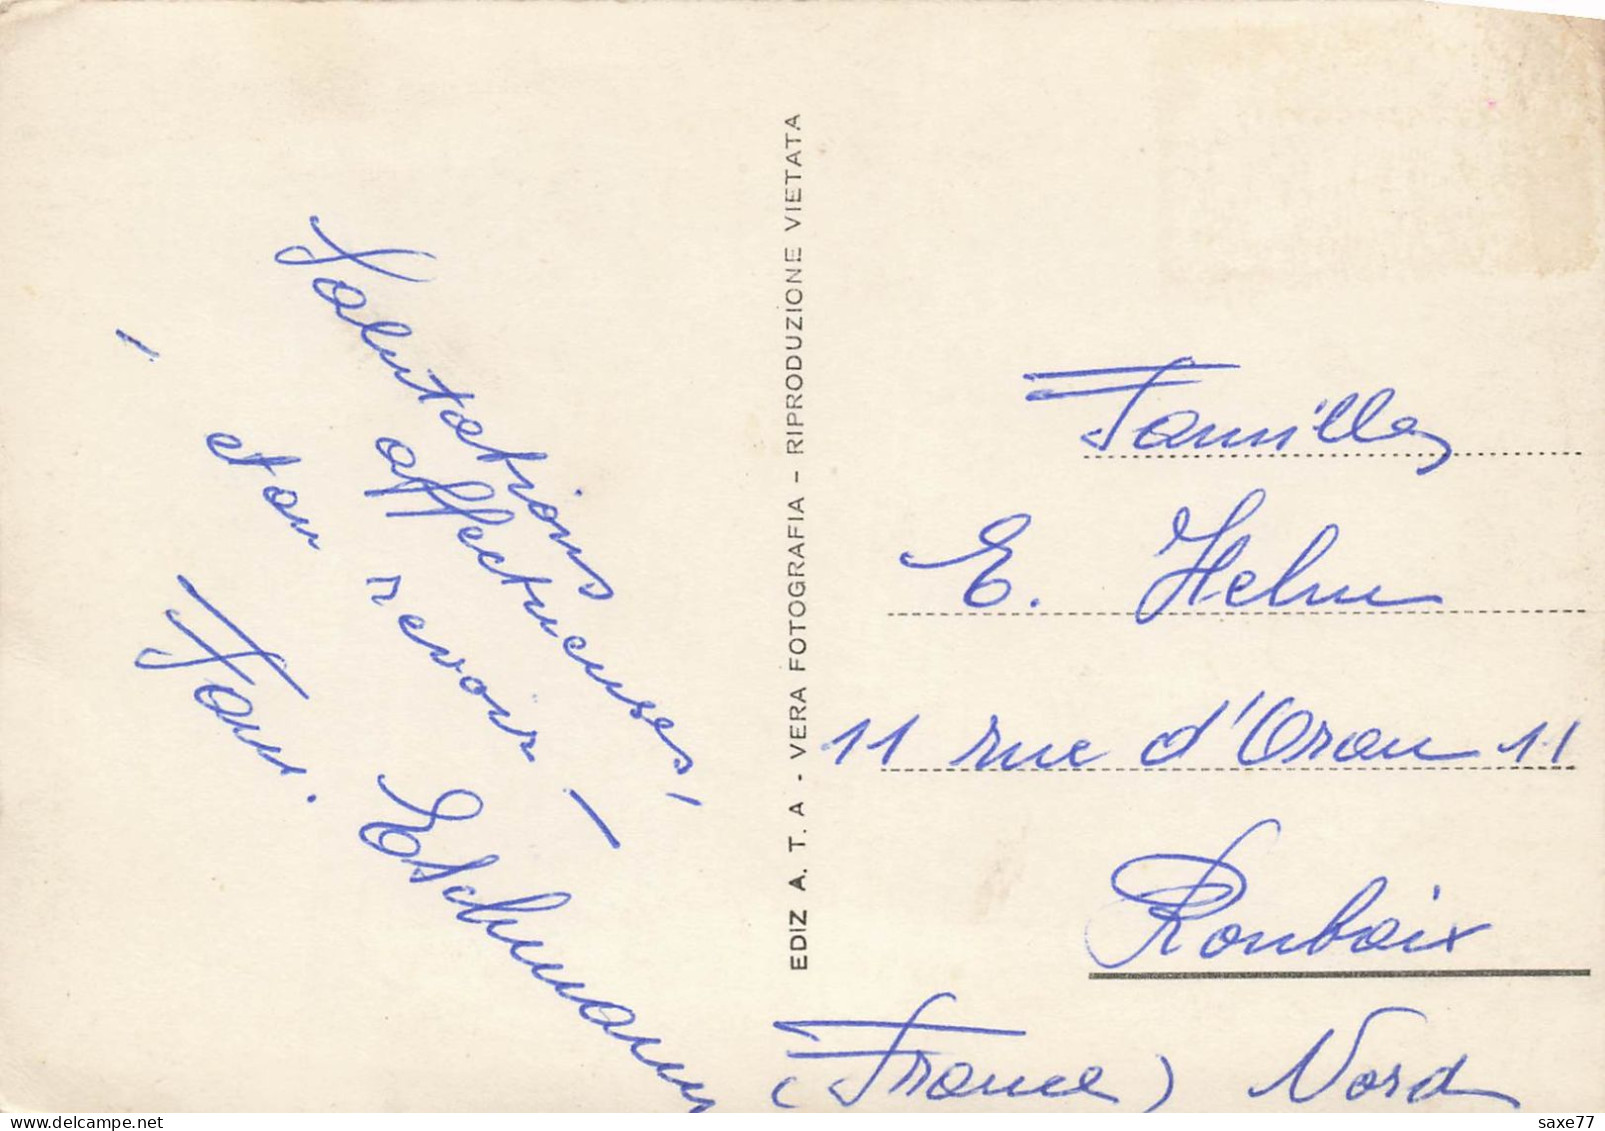 Salutations
affectueuses,
et au revoir -
Fam. Eschmann
EDIZ A. T. A - VERA FOTOGRAFIA - RIPRODUZIONE VIETATA
Famille
E. Helm
11 rue d'Oran 11
Roubaix
(France) Nord
saxe77